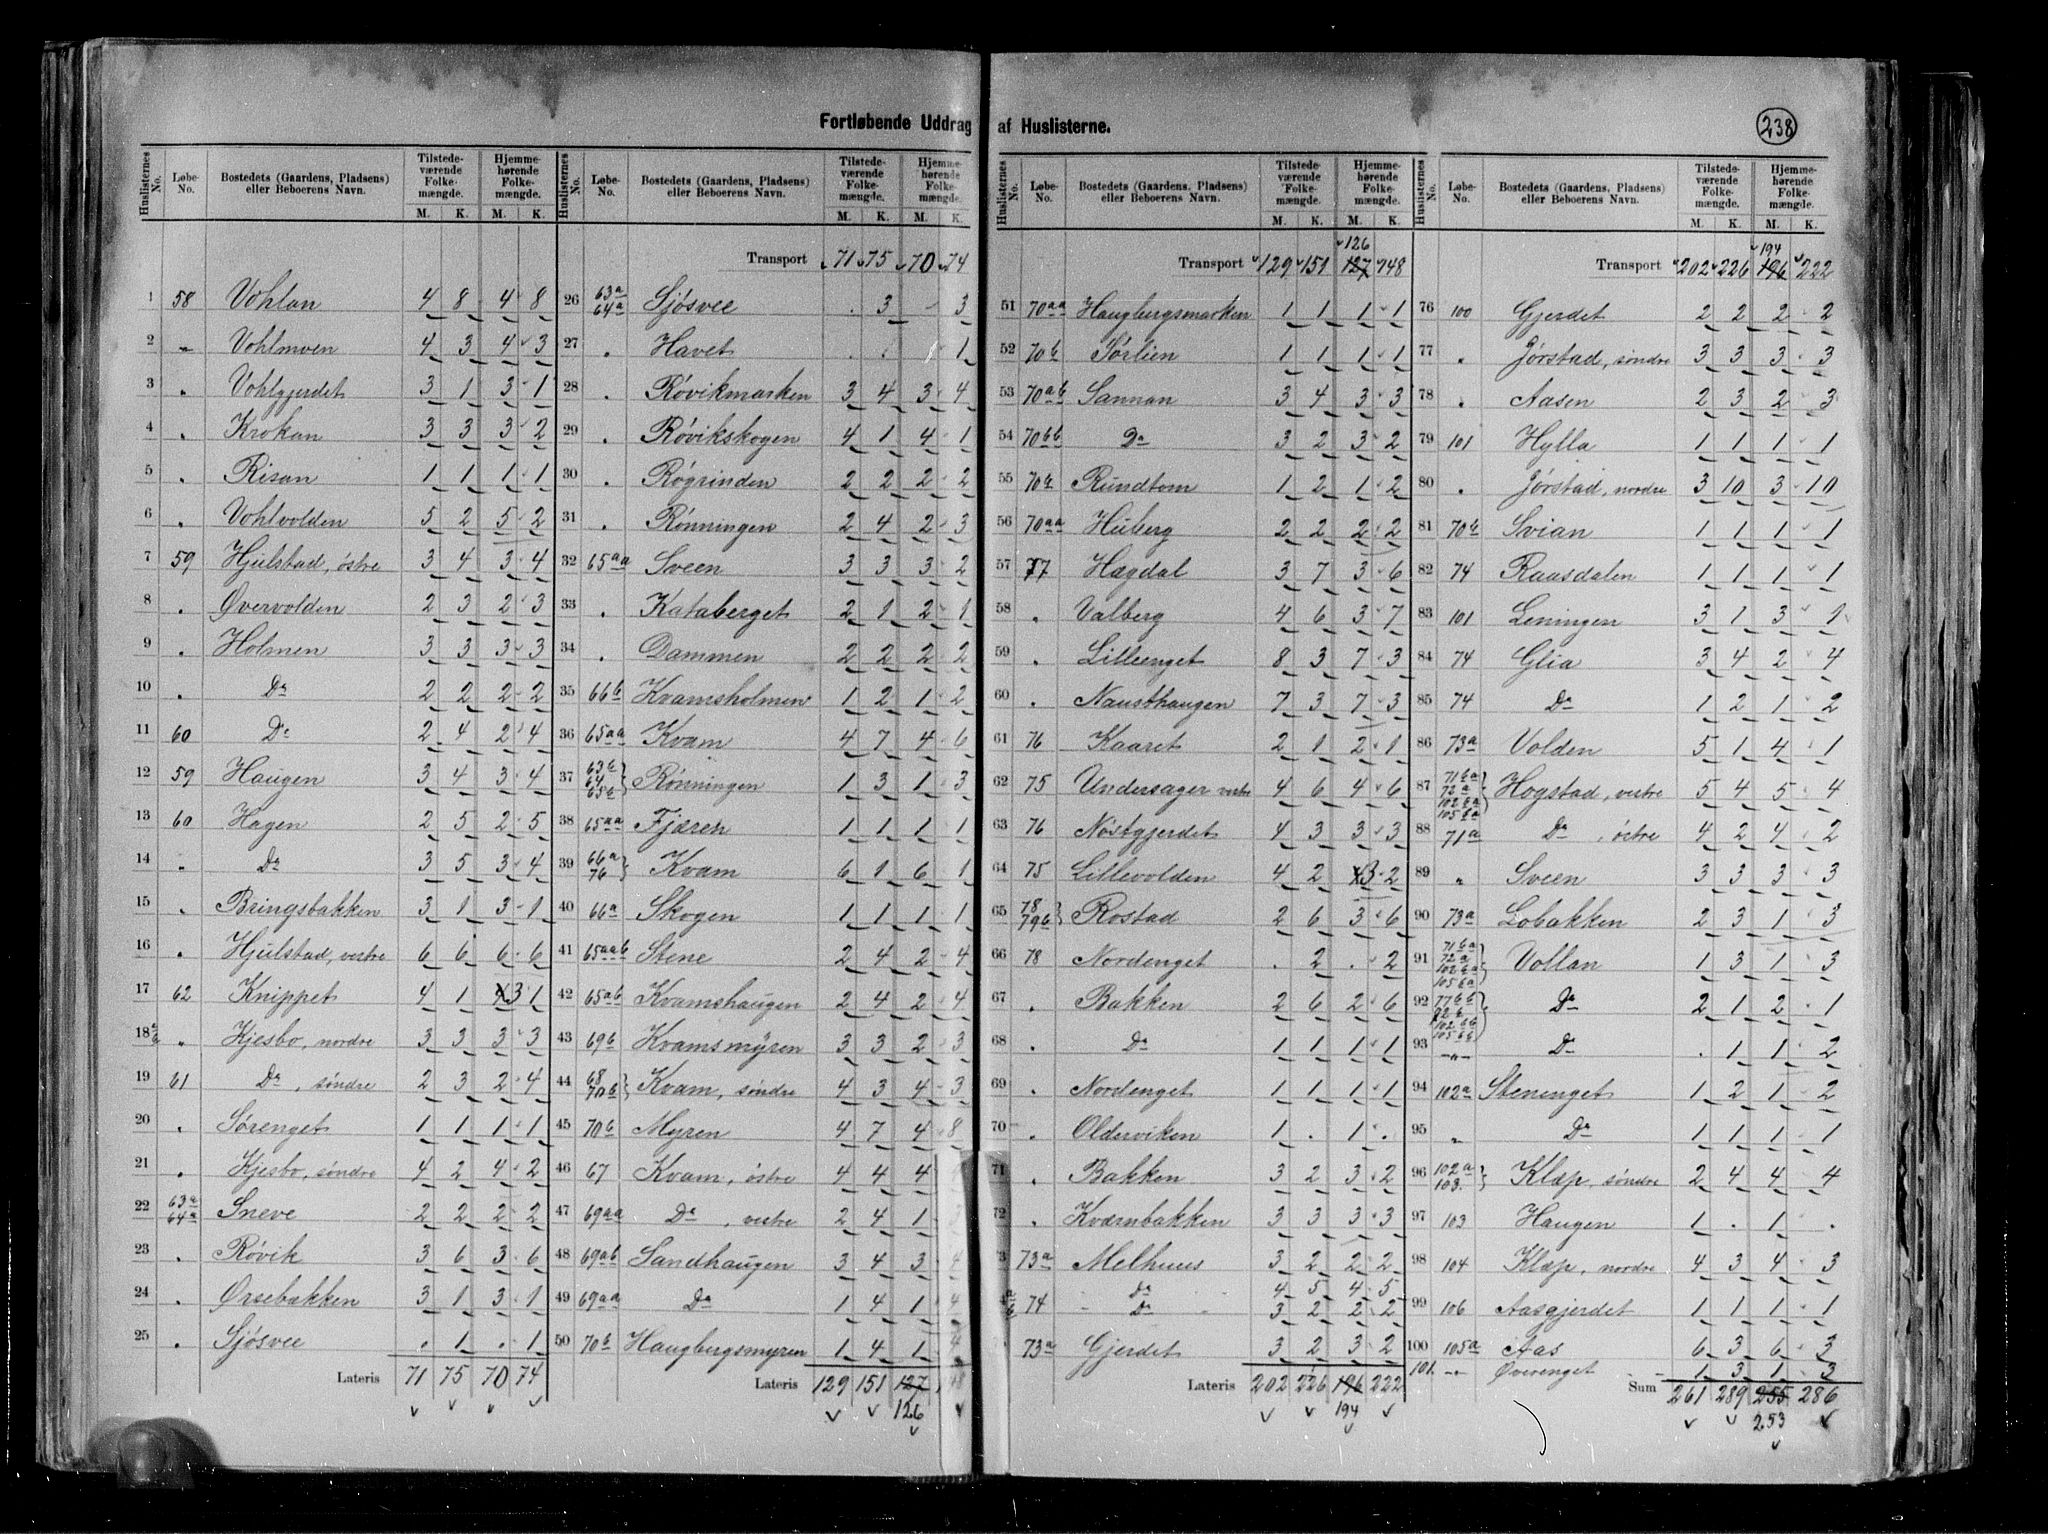 Fortløbende Uddrag af Huslisterne.
238
Huslisternes No. Løbe-No. Bostedets (Gaardens, Pladsens) eller Beboerens Navn. Tilstedeværende Folkemængde. M. K. Hjemmehørende Folkemængde. M. K.
1 58 Vohlan 4 8 4 8
2 " Vohlmoen 4 3 4 3
3 " Vohlgjerdet 3 1 3 1
4 " Krokan 3 3 3 2
5 " Risan 1 1 1 1
6 " Vohlvolden 5 2 5 2
7 59 Hjulstad, østre 3 4 3 4
8 " Øvervolden 2 3 2 3
9 " Holmen 3 3 3 3
10 " Do 2 2 2 2
11 60 Do 2 4 2 4
12 59 Haugen 3 4 3 4
13 60 Hagen 2 5 2 5
14 " Do 3 5 3 4
15 " Bringsbakken 3 1 3 1
16 " Hjulstad, vestre 6 6 6 6
17 62 Knippet 4 1 3 1
18 " Kjesbo, nordre 3 3 3 3
19 61 Do, søndre 2 3 2 4
20 " Sørenget 1 1 1 1
21 " Kjesbo, søndre 4 2 4 2
22 63a 64a Sneve 2 2 2 2
23 " Røvik 3 6 3 6
24 " Ørsebakken 3 1 3 1
25 " Sjøsvee . 1 . 1
Lateris 71 75 70 74
Huslisternes No. Løbe-No. Bostedets (Gaardens, Pladsens) eller Beboerens Navn. Tilstedeværende Folkemængde. M. K. Hjemmehørende Folkemængde. M. K.
Transport 71 75 70 74
26 63a 64a Sjøsvee . 3 - 3
27 " Havet . . 1 1
28 " Røvikmarken 3 4 3 4
29 " Røvikskogen 4 1 4 1
30 " Røgrinden 2 2 2 2
31 " Rønningen 2 4 2 3
32 65aa Sveen 3 3 3 2
33 " Kataberget 2 1 2 1
34 " Dammen 2 2 2 2
35 66b Kvamsholmen 1 2 1 2
36 65aa Kvam 4 7 4 6
37 63b 64 65b Rønningen 1 3 1 3
38 65aa Fjæren 1 1 1 1
39 66a 76 Kvam 6 1 6 1
40 66a Skogen 1 1 1 1
41 65aab Stene 2 4 2 4
42 65ab Kvamshaugen 2 4 2 4
43 69b Kvamsmyren 3 3 2 3
44 68 70b Kvam, søndre 4 3 4 3
45 70b Myren 4 7 4 8
46 67 Kvam, østre 4 4 4
47 69aa Do, vestre 2 4 1 3
48 69ab Sandhaugen 3 4 3 4
49 69aa Do 1 4 1 4
50 70b Haugbergsmyren 1 4 1 4
Lateris 129 151 127 148
126
Huslisternes No. Løbe-No. Bostedets (Gaardens, Pladsens) eller Beboerens Navn. Tilstedeværende Folkemængde. M. K. Hjemmehørende Folkemængde. M. K.
126
Transport 129 151 127 148
51 70aa Haugbergsmarken 1 1 1 1
52 70b Sørlien 1 1 1 1
53 70ab Sannan 3 4 3 3
54 70bb Do 3 2 3 2
55 70b Rundtom 1 2 1 2
56 70aa Huberg 2 2 2 2
57 77 Hægdal 3 7 3 6
58 " Valberg 4 6 3 7
59 " Lilleenget 8 3 7 3
60 " Nausthaugen 7 3 7 3
61 76 Kaaret 2 1 2 1
62 75 Undersager vestre 4 6 4 6
63 76 Nøstgjerdet 4 3 3 3
64 75 Lillevolden 4 2 3 2
65 78 79b Rostad 2 6 3 6
66 78 Nordenget . 2 . 2
67 " Bakken 2 6 2 6
68 " Do 1 1 1 1
69 " Nordenget 1 1 1 1
70 " Olderviken 1 . 1 .
71 " Bakken 3 2 3 2
72 " Kværnbakken 3 3 3 3
73 73a Melhuus 3 2 2 2
Do 4 5 4 5
74 Do 3 2 2 2
73a Gjerdet 3 2 3 2
Lateris 202 226 196 222
194
Huslisternes No. Løbe-No. Bostedets (Gaardens, Pladsens) eller Beboerens Navn. Tilstedeværende Folkemængde. M. K. Hjemmehørende Folkemængde. M. K.
194
Transport 202 226 196 222
76 100 Gjerdet 2 2 2 2
77 " Jørstad, søndre 3 3 3 3
78 " Aasen 2 3 2 3
79 101 Hylla 1 1 1 1
80 " Jørstad, nordre 3 10 3 10
81 70b Svian 1 1 1 1
82 74 Raasdalen 1 1 1 1
83 101 Leningen 3 1 3 1
84 74 Glia 3 4 2 4
85 74 Do 1 2 1 2
86 73a Volden 5 1 4 1
87 71ba 72a 102ba 105ba Hogstad, vestre 5 4 5 4
88 71a Do, østre 4 2 4 2
89 " Sveen 3 3 3 3
90 73a Lobakken 2 3 1 3
91 71ba 72a 102ba 105ba Vollan 1 3 1 3
92 102bb 105bb Do 2 1 2 1
93 -"- Do . 1 1 2
94 102a Stenenget 1 2 1 2
95 " Do 1 1 1 1
96 102a 103. Klæp, søndre 2 4 4 4
97 103 Haugen 1 . 1 .
98 104 Klæp, nordre 4 3 4 3
99 106 Aasgjerdet 1 1 1 1
100 105a Aas 6 3 6 3
101. -"- Øverenget 1 3 1 3
Sum 261 289 255 286
253